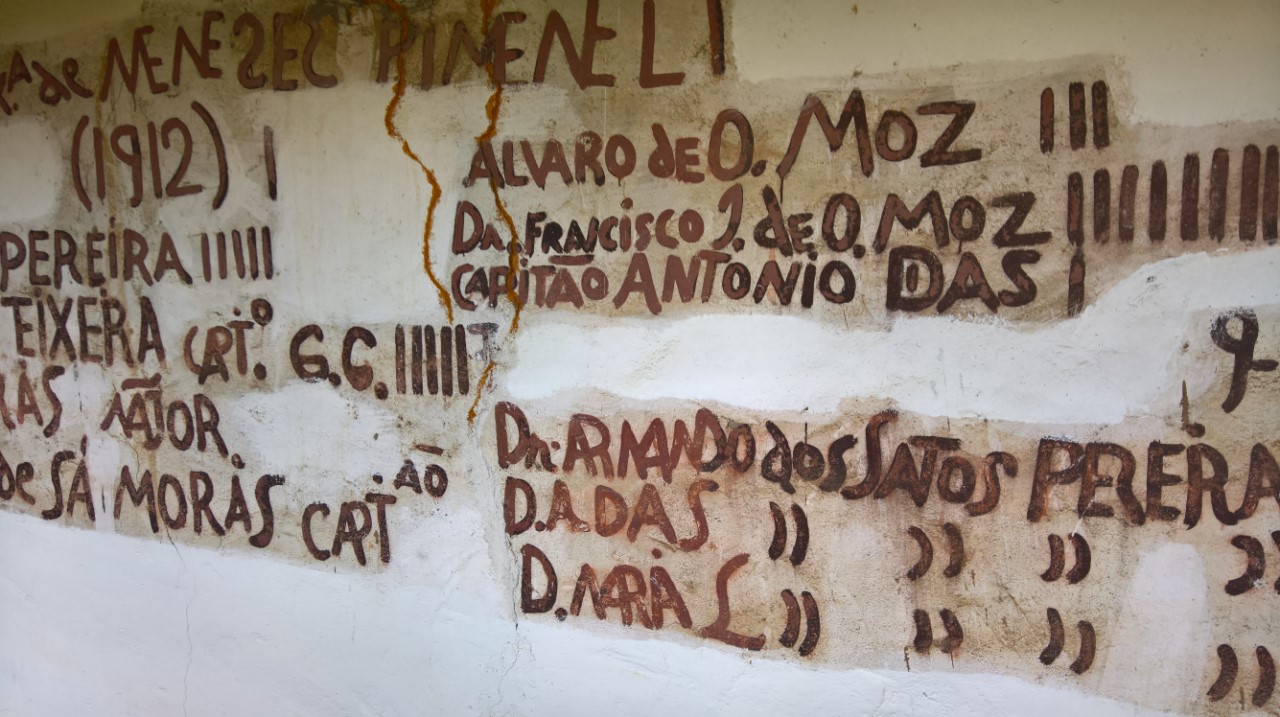 ª de MENESES PIMENEL I
(1912) I
PEREIRA IIIII
TEIXERA CAPT.º G.C. IIIII
MAIOR
de SÁ MORAS CAPT ÃO
ALVARO de O. MOZ III
Dr. FRANCISCO J. de O. MOZ IIIIIIIII
CAPITÃO ANTONIO DAS I
Dr. ARMANDO dos SATOS PEREIRA
D. ADAS )) )) )) ))
D. MARIA L )) )) )) ))